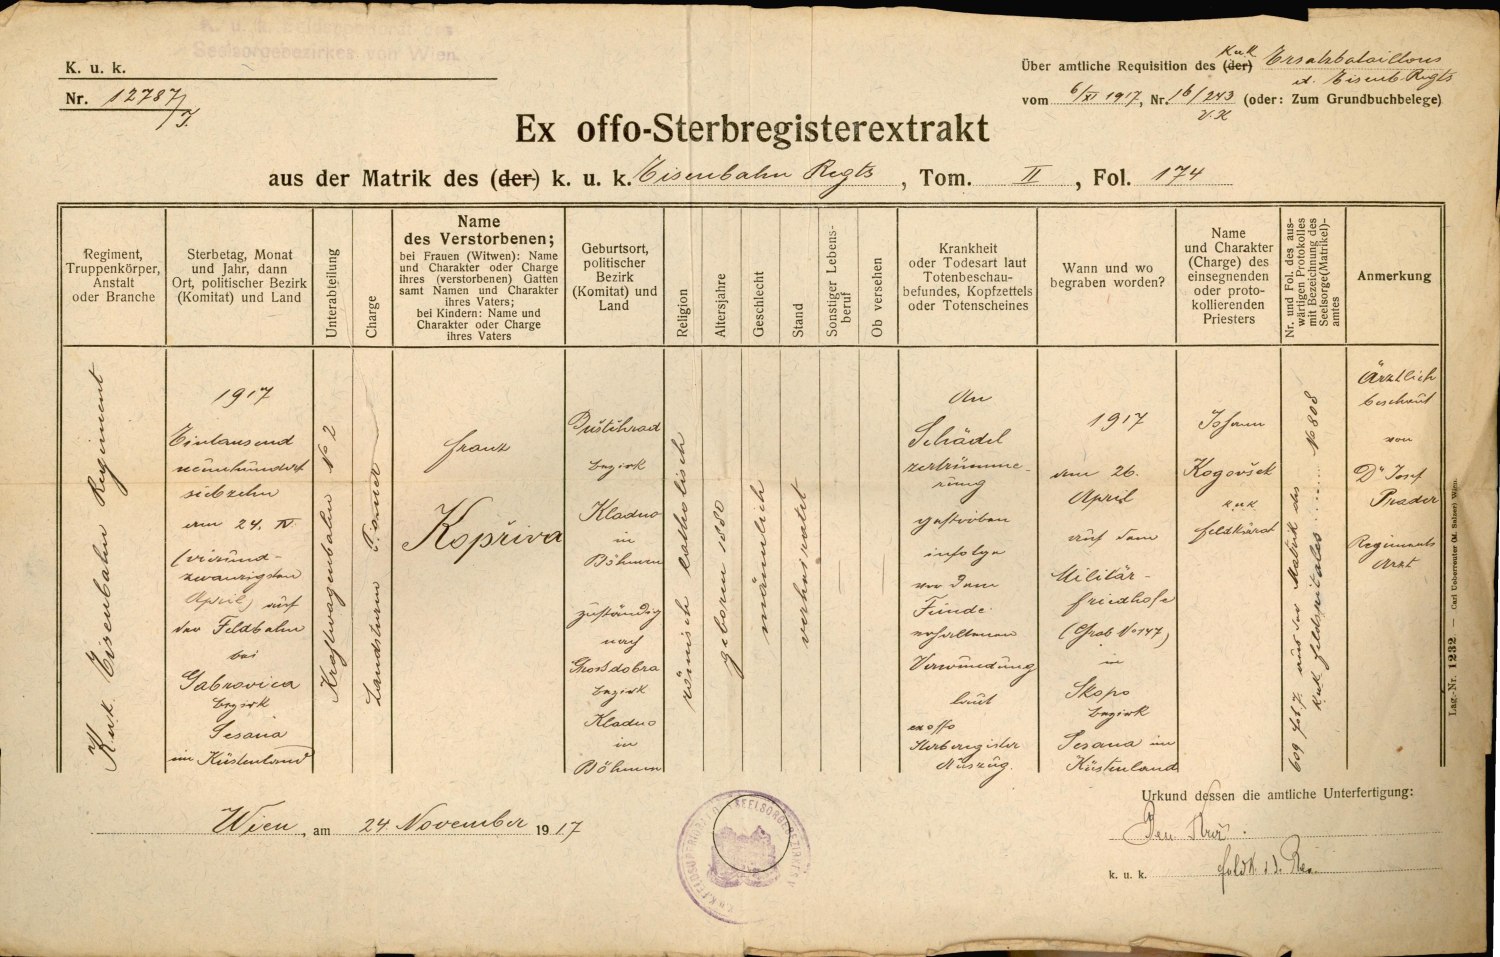 K. u. k. Feldsuperiorat des
Seelsorgebezirkes von Wien.
K. u. k.
Nr. 12787/I.
Über amtliche Requisition des (der) KuK Ersatzbataillons
d. Eisenb. Regts
vom 6/XI 1917, Nr. 16/243 (oder: Zum Grundbuchbelege)
Ex offo-Sterbregisterextrakt
aus der Matrik des (der) k. u. k. Eisenbahn Regts, Tom. II, Fol. 174
Regiment,
Truppenkörper,
Anstalt
oder Branche
Sterbetag, Monat
und Jahr, dann
Ort, politischer Bezirk
(Komitat) und Land
Unterabteilung
Charge
Name
des Verstorbenen;
bei Frauen (Witwen): Name
und Charakter oder Charge
ihres (verstorbenen) Gatten
samt Namen und Charakter
ihres Vaters;
bei Kindern: Name und
Charakter oder Charge
ihres Vaters
Geburtsort,
politischer
Bezirk
(Komitat) und
Land
Religion
Altersjahre
Geschlecht
Stand
Sonstiger Lebens-
beruf
Ob versehen
Krankheit
oder Todesart laut
Totenbeschau-
befundes, Kopfzettels
oder Totenscheines
Wann und wo
begraben worden?
Name
und Charakter
(Charge) des
einsegnenden
oder proto-
kollierenden
Priesters
Nr. und Fol. des aus-
wärtigen Protokolles
mit Bezeichnung des
Seelsorge(Matrikel)-
amtes
Anmerkung
Kuk. Eisenbahn Regiment
1917
Eintausend
neunhundert
siebzehn
am 24. IV.
(vierund-
zwanzigsten
April) auf
der Feldbahn
bei
Gabrovica
Bezirk
Sesana
im Küstenland
Kraftwagenbahn No 2
Landsturm Pionier
Franz
Kopřiva
Buštěhrad
Bezirk
Kladno
in
Böhmen
zuständig
nach
Grossdobra
Bezirk
Kladno
in
Böhmen
römisch katholisch
geboren 1880
männlich
verheiratet
An
Schädel
zertrümme-
rung
gestorben
infolge
vor dem
Feinde
erhaltenen
Verwundung
laut
ex offo
Sterberegister
Auszug.
1917
am 26.
April
auf dem
Militär-
friedhofe
(Grab No 147)
in
Skopo
Bezirk
Sesana im
Küstenland
Johann
Kogovšek
kuk
Feldkurat
609 fol 7. aus der Matrik des
kuk Feldspitales No 808
Ärztlich
beschaut
von
Dr Josef
Prader
Regiments
Arzt
Wien, am 24 November 1917
Urkund dessen die amtliche Unterfertigung:
k. u. k. Feldk. i. d. Res.
Lag.-Nr. 1232 — Carl Ueberreuter (M. Salzer) Wien.